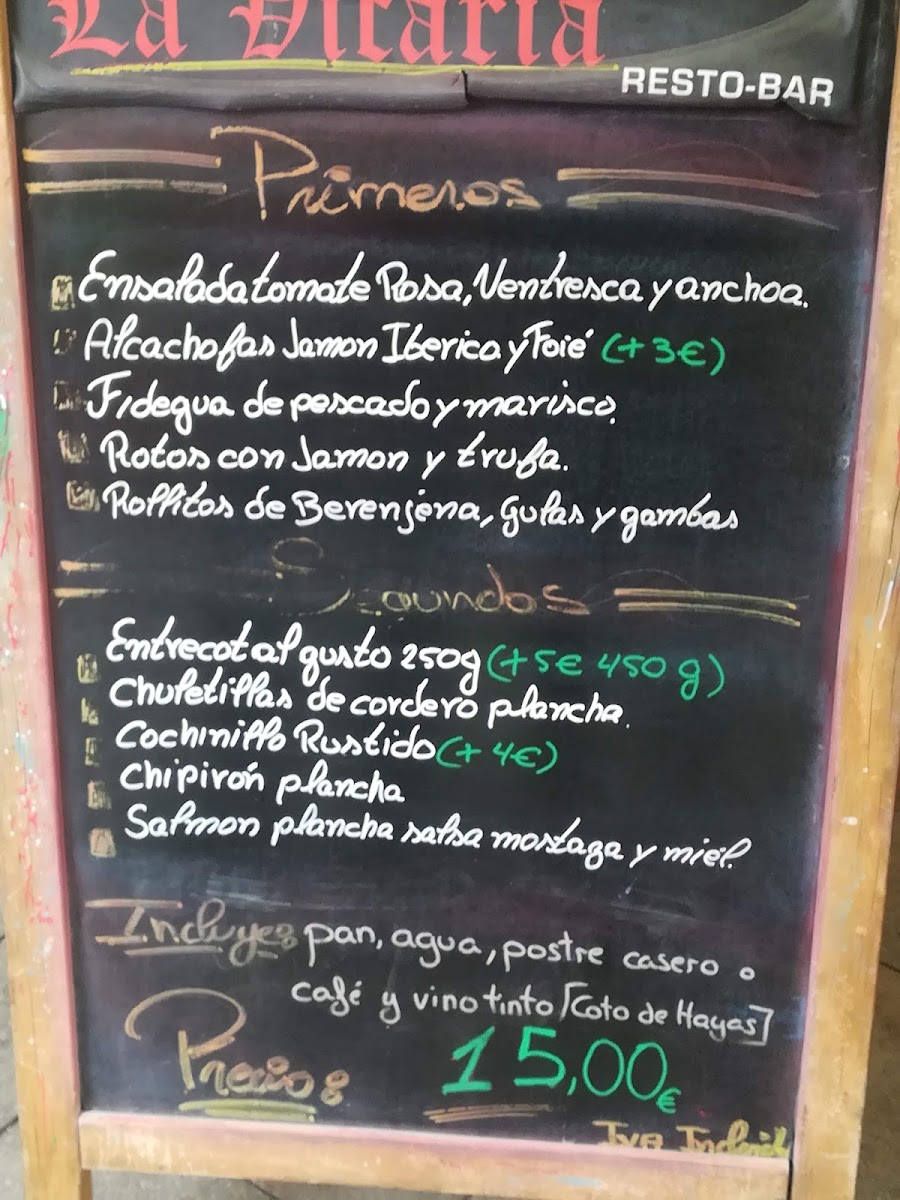 La Vicaria
RESTO-BAR
Primeros
Ensalada tomate Rosa, Ventresca y anchoa.
Alcachofas Jamon Iberico y Foié (+3€)
Fidegua de pescado y marisco.
Rotos con Jamon y trufa.
Rollitos de Berenjena, gulas y gambas
Segundos
Entrecot al gusto 250g (+5€ 450 g)
Chuletillas de cordero plancha.
Cochinillo Rustido (+4€)
Chipirón plancha
Salmon plancha salsa mostaza y miel.
Incluye: pan, agua, postre casero o
café y vino tinto [Coto de Hayas]
Precio: 15,00€
Iva Incluid